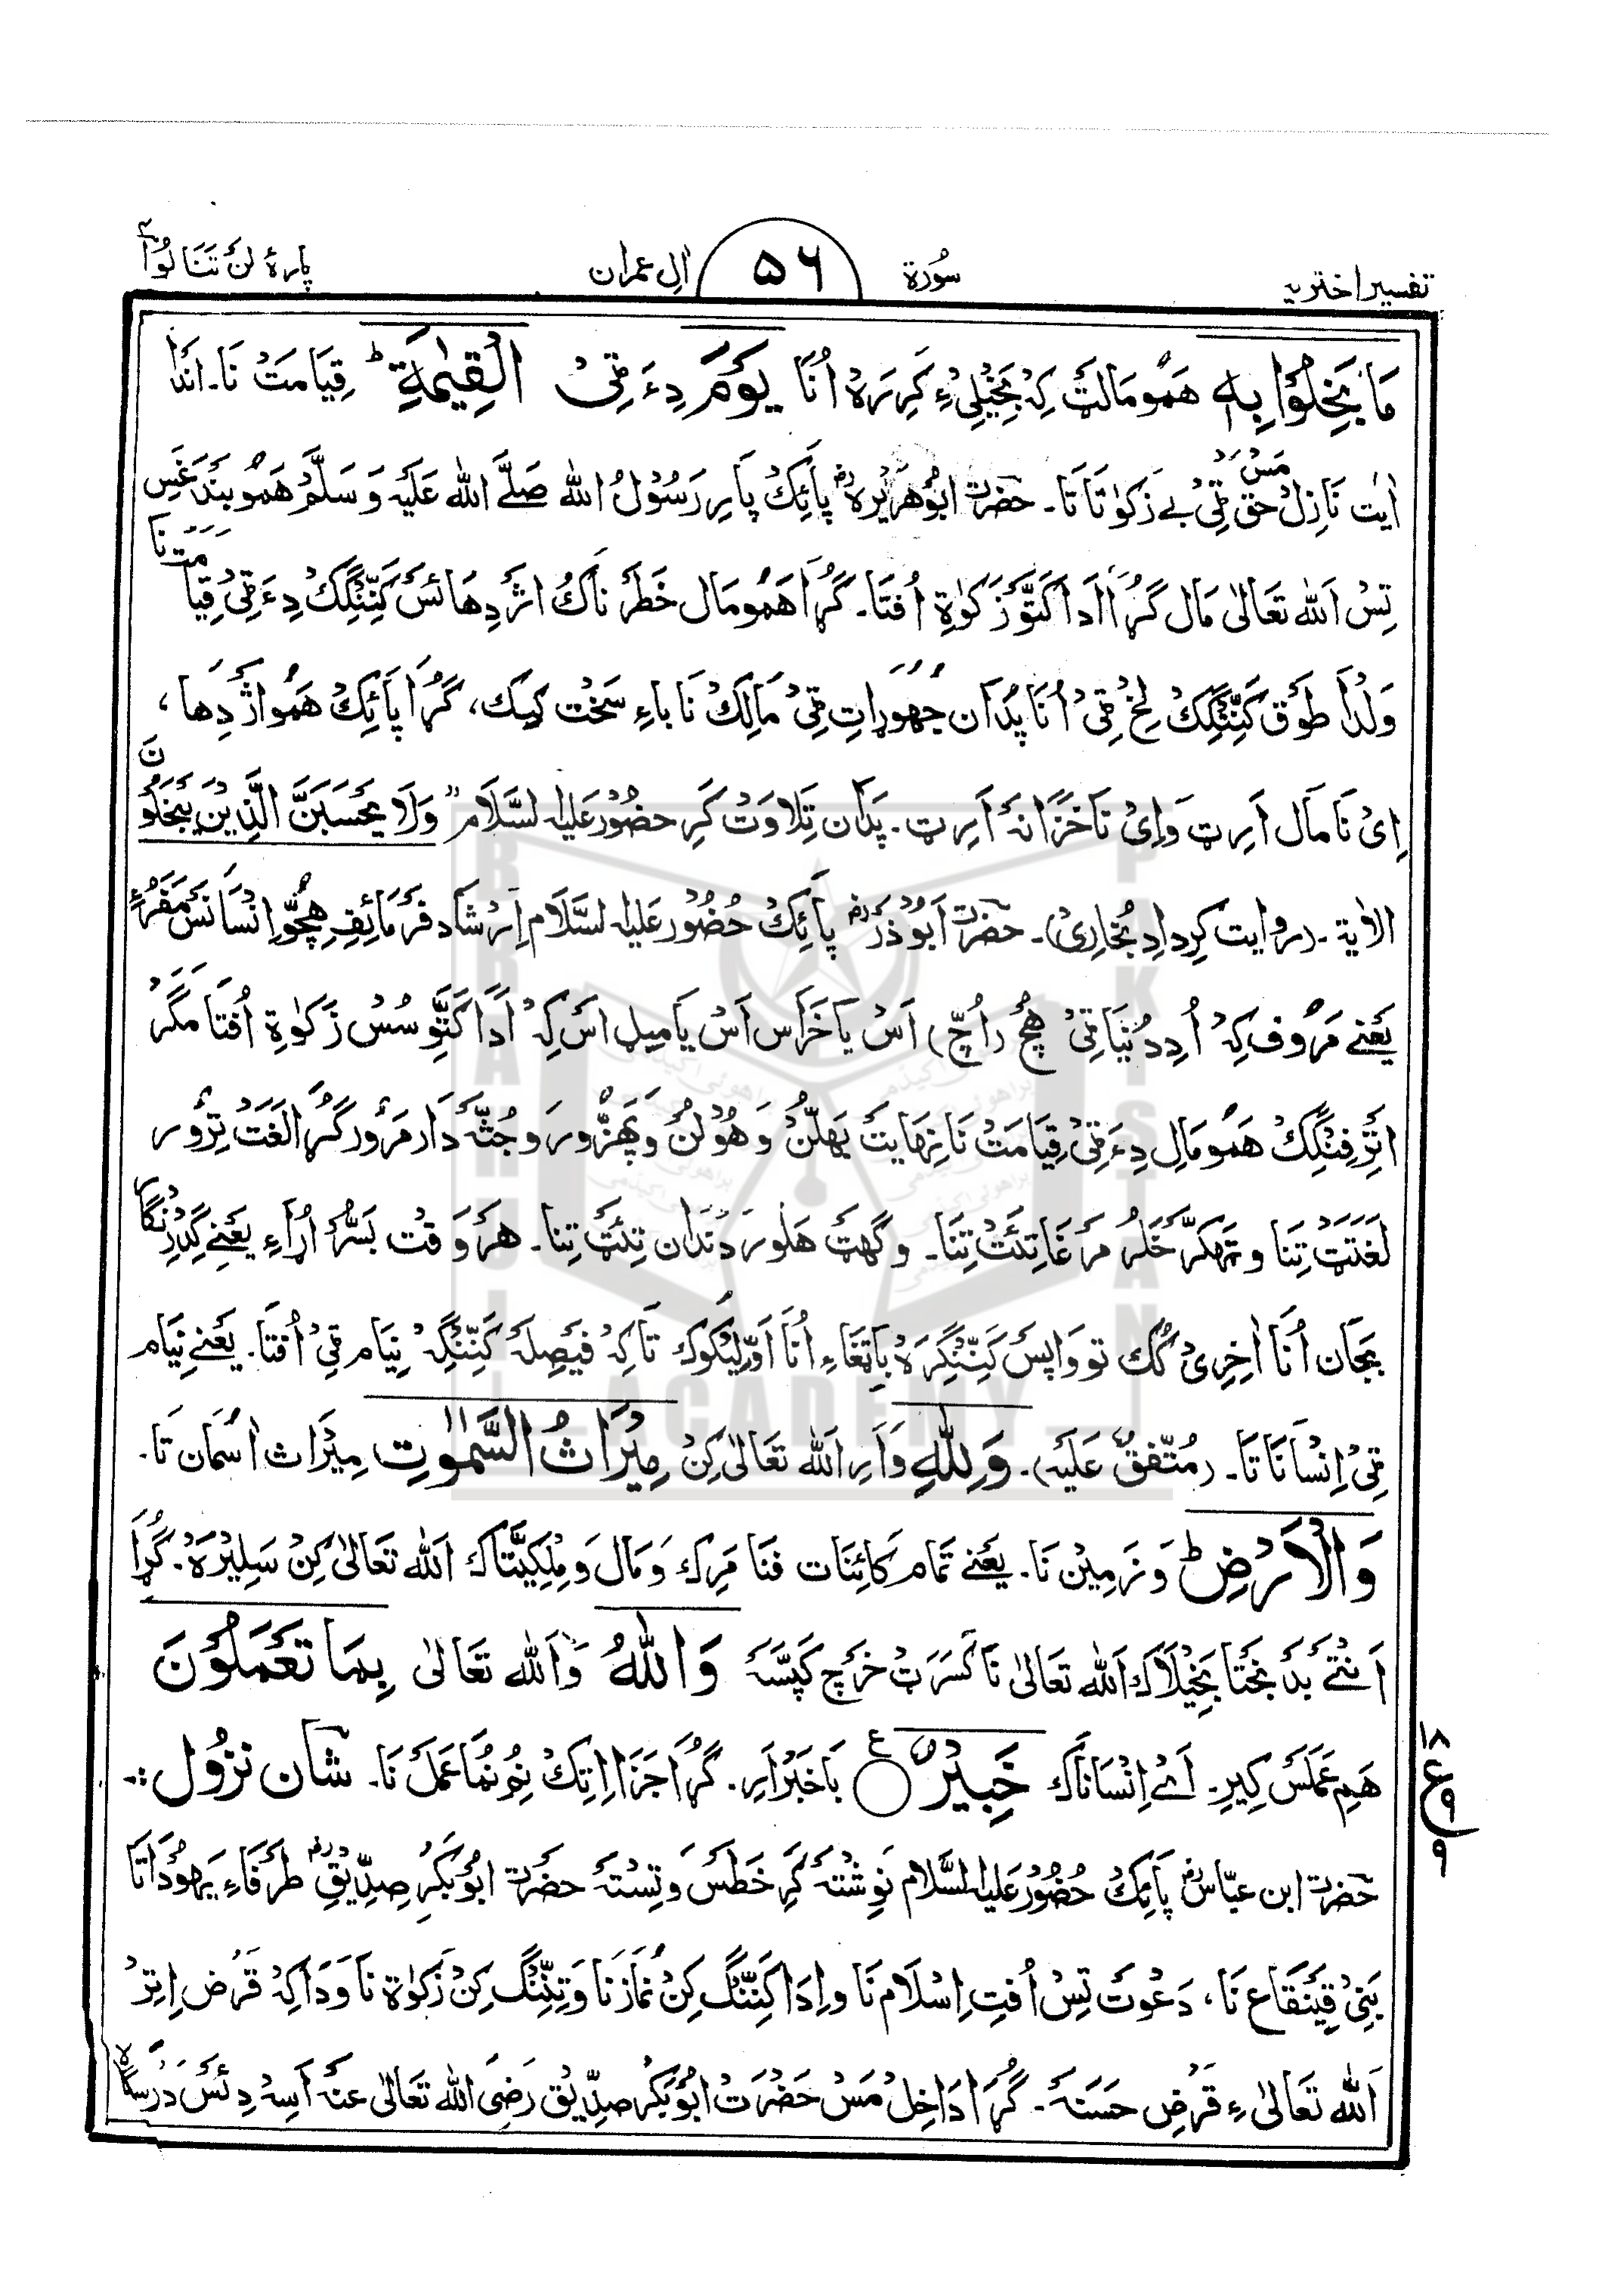 تفسیر اختریہ سُورة ۵۶ اٰلِ عمران پارۀ لَنۡ تَنَا لُوۡا ۴
مَا بَخِلُوۡا بِهٖ هَمُو مَالِٹ كِہ بَخِیۡلِیۡ ءِ كَرِرَہۡ اُنَا یَوۡمَ دِءَ ٹِیۡ الۡقِیٰمَةِ ؕ قِیَامَتۡ نَا۔ اندَا
اٰیَت نَازِلۡ مَسۡ حَقّ ٹِیۡ بے زَکوٰتَا تَا۔ حضرت ابُوۡهُرَیۡرہؓ پَائِكۡ پَارِ رَسُوۡلُ اللّٰه صَلَّے اللّٰه عَلَیۡہ وَ سَلَّمۡ هَمُو بَنۡدَغَسِ
تِسۡ اَللّٰه تَعَالٰی مَال گُڑَا اَدَا کَتَّوۡ زَكوٰةِ اُفتَا۔ گُڑَا هَمُو مَال خَطَرۡ نَاكۡ اژدِهَائَسۡ کَنِّنۡگِكۡ دِءَ ٹِیۡ قِیَامَتۡ نَا
وَلۡدَا طَوۡق کَنِّنۡگِكۡ لِخۡ ٹِیۡ اُنَا پَدَان جُهوۡرَاتِ ٹِیۡ مَالِكۡ نَا بَاءِ سَخۡت كیك، گُڑَا پَائِكۡ هَمُو اژدِهَا،
اِیۡ نَا مَال اَرِٹ وَاِیۡ نَا خَزَانَہ اَرِٹ۔ پَدَان تِلَاوَتۡ کَرِ حضُوۡر عَلَیہِ السَّلَام ” وَلَا یَحۡسَبَنَّ الَّذِیۡنَ یَبۡخَلُوۡنَ
الاٰیة۔ (رِوایت کِرِدادِ بُخَارِیۡ)۔ حضرت اَبُوۡذَرؓ پَائِكۡ حُضُوۡر عَلَیہِ السَّلَام اِرۡشَاد فَرمَائِفِ هِچُّوۡ اِنۡسَانَسۡ مَفَرُءٌ
یَعۡنے مَرُوف كِہۡ اُ دِدُنۡیَا ٹِیۡ هُچۡ (اُچّ) اَسۡ یَا خَرَاس اَسۡ یَا مِیل اَسۡ كِہۡ اَدَا کَتَّوۡسُسۡ زَكوٰةِ اُفتَا مَگَرۡ
هَمُو مَالِ دِءَ ٹِیۡ قِیَامَتۡ نَا نِهَایتۡ بَهلُّنۡ وَ هُوۡلُنۡ وَ وَ جُثَّہ دَار مَرۡوۡر گُڑَا لَغَتۡ
لَغَتَتِٹۡ تِنَا وَ مَرغَا تِتَتۡ تِنَا۔ وَ دَندَان تِتِٹۡ تِنَا۔ هَرۡ وَقۡت یَعۡنے گِدَرِنۡگَار
اُنَا اٰخِرِیۡ كُك تو وَاپَسۡ کَنِّنۡگِرَہۡ اُنَا تَا كِہۡ فَیۡصِلَہ کَنِّنۡگِہۡ نِیَام ٹِیۡ اُفتَا۔ یَعۡنے نِیَام
ٹِیۡ اِنۡسَانَا تَا۔ (مُتَّفَقٌ عَلَیۡہ)۔ وَ لِلّٰهِ وَاَرِ اَللّٰه تَعَالٰی كِنۡ مِیۡرَاثُ السَّمٰوٰتِ مِیۡرَاث اٰسۡمَان تَا۔
وَالۡاَرۡضِ ؕ وَ زَمِیۡن نَا۔ یَعۡنے تَمَام كَائِنَات فَنَا مَرِك وَ مَال وَ مِلۡكِیَّتَاك اَللّٰه تَعَالٰی كِنۡ سَلِیۡرَہۡ۔ گُڑَا
اَنۡتَے بَدۡ بَخۡتَا بَخِیۡلَاك اَللّٰه تَعَالٰی نَا كَسَرَٹۡ خَرچ كَپَسَّہ وَاللّٰهُ وَاَللّٰه تَعَالٰی بِمَا تَعۡمَلُوۡنَ
هَم عَمَلَسۡ كِیرِ۔ اَے اِنۡسَانَاك خَبِیۡرٌ ۠ بَاخَبَرۡ اَرِ۔ گُڑَا جَزَا اِتِكۡ نُم نُمَا عَمَلۡ نَا۔ شَان نزُول :۔
حضرت ابن عبّاسؓ پَائِكۡ حُضُوۡر عَلَیہِ السَّلَام نَوِشۡتَہ کَرِ خَطَسۡ وَ تِسۡتَہ حضرت ابُوۡبَكَرِ صِدِّیۡقؓ طَرفَاءِ یَهُوۡدَاتَا
بَنِیۡ قَیۡنَقَاع نَا، دَعۡوَت تِسۡ اُفتِ اِسۡلَام نَا وَ اِدَا کَنِّنۡگ كِنۡ نُمَازۡ نَا وَ تِنِّنۡگ كِنۡ زَكوٰة نَا وَ دَا كِہۡ قَرۡض اِتِرۡ
اَللّٰه تَعَالٰی ءِ قَرۡضِ حَسَنَہ۔ گُڑَا دَاخِلۡ مَسۡ حَضۡرَتۡ ابُوۡبَكَرۡ صِدِّیۡق رَضِیَ اللّٰه تَعَالٰی عَنہُ اَسِہ دِئَسۡ دَرۡسگاہ
۱۸
ع ۹
۹
BRAHUI ACADEMY PAKISTAN
براہوئی اکیڈمی